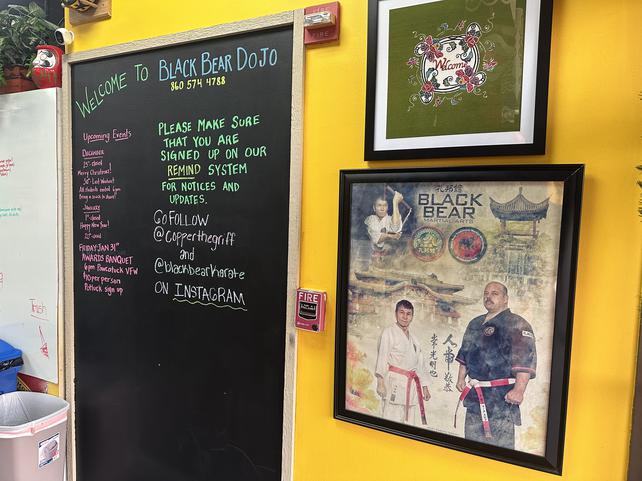 WELCOME TO BLACK BEAR DOJO
860 574 4788
Upcoming Events
DECEMBER
25th-closed
Merry Christmas!
30th-Last Workout
All students invited 6pm
Bring a snack to share!
JANUARY
1st-closed
Happy New Year!
FRIDAY JAN 31st
AWARDS BANQUET
6pm Pawcatuck VFW
per person
Potluck sign up
PLEASE MAKE SURE
THAT YOU ARE
SIGNED UP ON OUR
REMIND SYSTEM
FOR NOTICES AND
UPDATES.
GO FOLLOW
@Copperthegriff
and
@blackbearkarate
ON INSTAGRAM
Trash
FIRE
Welcome
BLACK
BEAR
MARTIAL ARTS